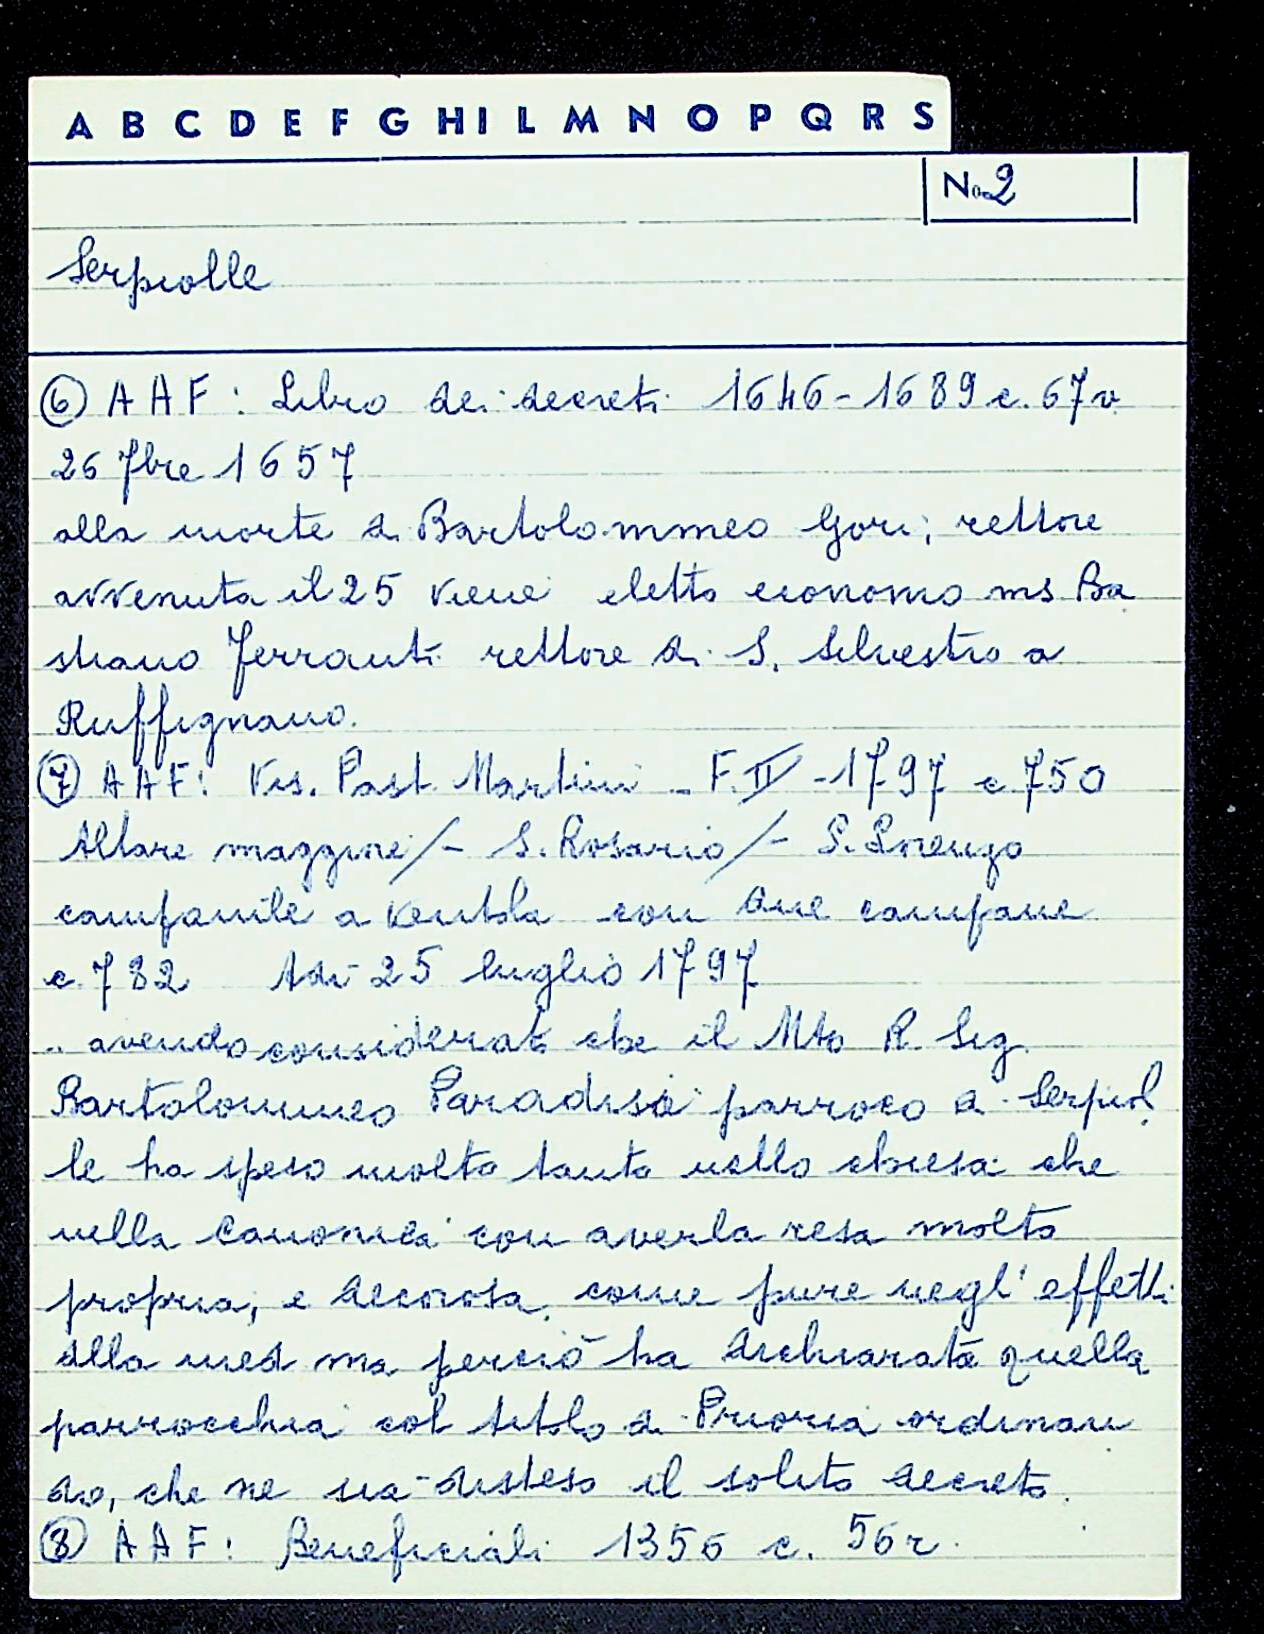 A B C D E F G H I L M N O P Q R S
No. 2
Serpiolle
⑥ A A F : Libro dei decreti 1646-1689 c. 67v
26 7bre 1657
alla morte di Bartolommeo Gori, rettore
avvenuta il 25 viene eletto economo ms Ba
stiano Ferranti rettore di S. Silvestro a
Ruffignano.
⑦ A A F : Vis. Past. Martini - F. II - 1797 c 750
Altare maggiore/- S. Rosario/- S. Lorenzo
campanile a ventola con due campane
c. 782 Adi 25 luglio 1797
.. avendo considerato che il Mto R Sig.
Bartolommeo Paradisi parroco di Serpiol
le ha speso molto tanto nella chiesa che
nella canonica con averla resa molto
propria, e decorosa, come pure negl' effetti
della med ma perciò ha dichiarata quella
parrocchia col titolo di Prioria ordinan
do, che ne sia disteso il solito decreto.
⑧ A A F : Beneficiali 1356 c. 56r.